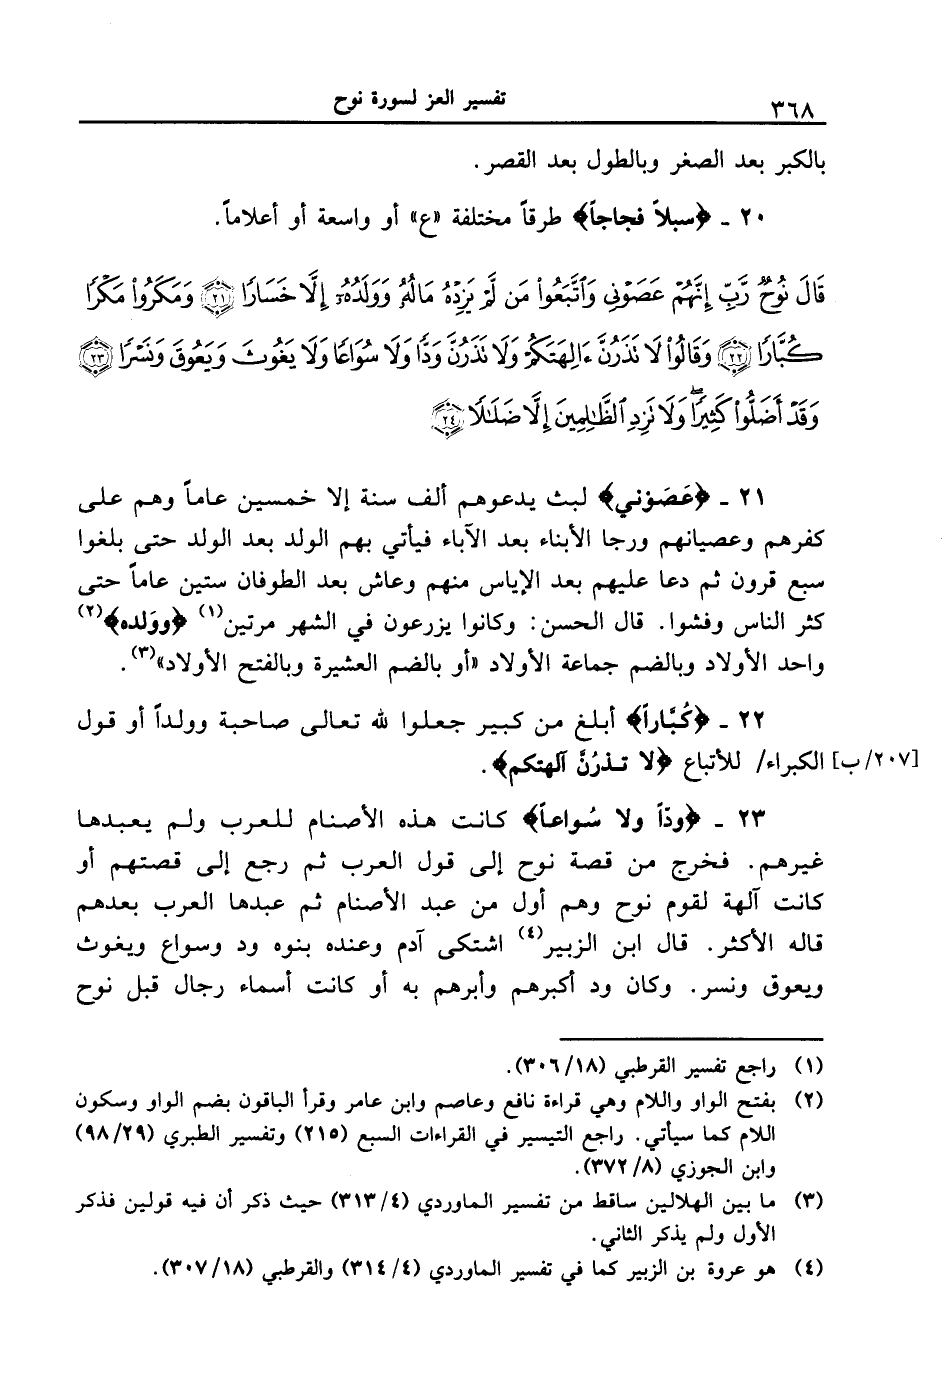 ٣٦٨ تفسير العز لسورة نوح
بالكبر بعد الصغر وبالطول بعد القصر.
٢٠ ـ ﴿سبلاً فجاجاً﴾ طرقاً مختلفة «ع» أو واسعة أو أعلاماً.
قَالَ نُوحٌ رَّبِّ إِنَّهُمْ عَصَوْنِى وَٱتَّبَعُوا۟ مَن لَّمْ يَزِدْهُ مَالُهُۥ وَوَلَدُهُۥٓ إِلَّا خَسَارًا ﴿٢١﴾ وَمَكَرُوا۟ مَكْرًا
كُبَّارًا ﴿٢٢﴾ وَقَالُوا۟ لَا تَذَرُنَّ ءَالِهَتَكُمْ وَلَا تَذَرُنَّ وَدًّا وَلَا سُوَاعًا وَلَا يَغُوثَ وَيَعُوقَ وَنَسْرًا ﴿٢٣﴾
وَقَدْ أَضَلُّوا۟ كَثِيرًا ۖ وَلَا تَزِدِ ٱلظَّـٰلِمِينَ إِلَّا ضَلَـٰلًا ﴿٢٤﴾
٢١ ـ ﴿عَصَوْني﴾ لبث يدعوهم ألف سنة إلا خمسين عاماً وهم على
كفرهم وعصيانهم ورجا الأبناء بعد الآباء فيأتي بهم الولد بعد الولد حتى بلغوا
سبع قرون ثم دعا عليهم بعد الإياس منهم وعاش بعد الطوفان ستين عاماً حتى
كثر الناس وفشوا. قال الحسن: وكانوا يزرعون في الشهر مرتين(١) ﴿ووَلده﴾(٢)
واحد الأولاد وبالضم جماعة الأولاد «أو بالضم العشيرة وبالفتح الأولاد»(٣).
٢٢ ـ ﴿كُبَّاراً﴾ أبلغ من كبير جعلوا لله تعالى صاحبة وولداً أو قول
[٢٠٧/ب] الكبراء/ للأتباع ﴿لا تـذرُنَّ آلهتكم﴾.
٢٣ ـ ﴿ودّاً ولا سُواعاً﴾ كانت هذه الأصنام للعرب ولم يعبدها
غيرهم. فخرج من قصة نوح إلى قول العرب ثم رجع إلى قصتهم أو
كانت آلهة لقوم نوح وهم أول من عبد الأصنام ثم عبدها العرب بعدهم
قاله الأكثر. قال ابن الزبير(٤) اشتكى آدم وعنده بنوه ود وسواع ويغوث
ويعوق ونسر. وكان ود أكبرهم وأبرهم به أو كانت أسماء رجال قبل نوح
(١) راجع تفسير القرطبي (٣٠٦/١٨).
(٢) بفتح الواو واللام وهي قراءة نافع وعاصم وابن عامر وقرأ الباقون بضم الواو وسكون
اللام كما سيأتي. راجع التيسير في القراءات السبع (٢١٥) وتفسير الطبري (٩٨/٢٩)
وابن الجوزي (٣٧٢/٨).
(٣) ما بين الهلالين ساقط من تفسير الماوردي (٣١٣/٤) حيث ذكر أن فيه قولين فذكر
الأول ولم يذكر الثاني.
(٤) هو عروة بن الزبير كما في تفسير الماوردي (٣١٤/٤) والقرطبي (٣٠٧/١٨).